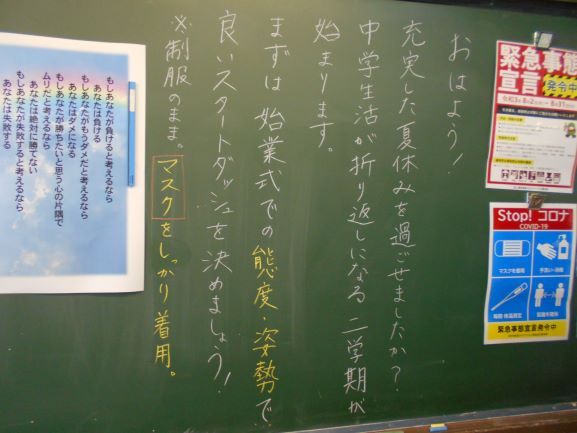 おはよう！
充実した夏休みを過ごせましたか？
中学生活が折り返しになる二学期が
始まります。
まずは始業式での態度・姿勢で
良いスタートダッシュを決めましょう！
※制服のまま。マスクをしっかり着用。
緊急事態
宣言 発令中
Stop! コロナ
COVID-19
マスクを着用
手洗い・消毒
緊急事態宣言発令中
もしあなたが負けると考えるなら
あなたは負ける
もしあなたがもうダメだと考えるなら
あなたはダメになる
もしあなたが勝ちたいと思う心の片隅で
ムリだと考えるなら
あなたは絶対に勝てない
もしあなたが失敗すると考えるなら
あなたは失敗する